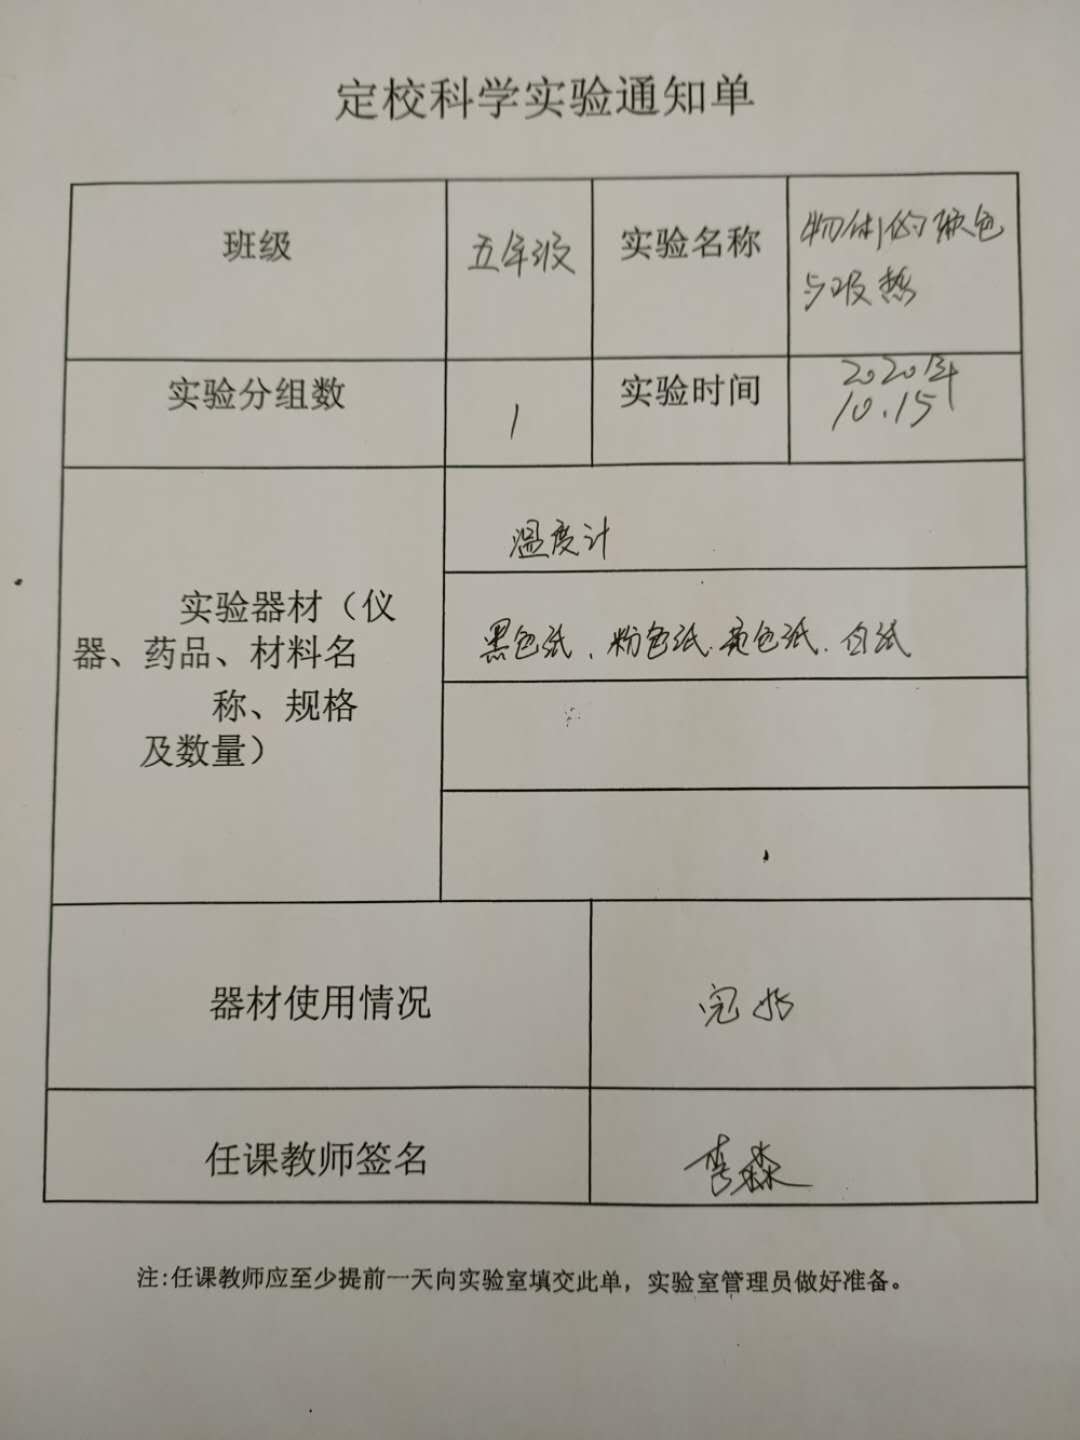 定校科学实验通知单
班级
五年级
实验名称
物体的颜色
与吸热
实验分组数
1
实验时间
2020年
10.15
实验器材（仪
器、药品、材料名
称、规格
及数量）
温度计
黑色纸、粉色纸.黄色纸.白纸
器材使用情况
完好
任课教师签名
注:任课教师应至少提前一天向实验室填交此单，实验室管理员做好准备。